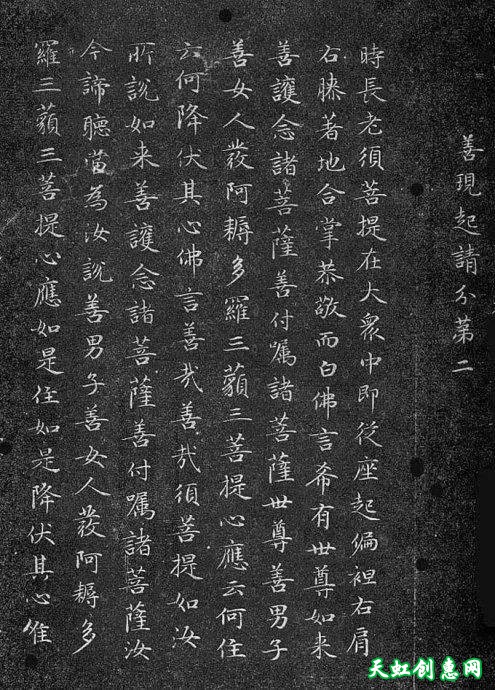 善現起請分第二
時長老須菩提在大衆中即從座起偏袒右肩
右膝著地合掌恭敬而白佛言希有世尊如来
善護念諸菩薩善付囑諸菩薩世尊善男子
善女人發阿耨多羅三藐三菩提心應云何住
云何降伏其心佛言善哉善哉須菩提如汝
所說如来善護念諸菩薩善付囑諸菩薩汝
今諦聽當為汝說善男子善女人發阿耨多
羅三藐三菩提心應如是住如是降伏其心唯
天虹创意网